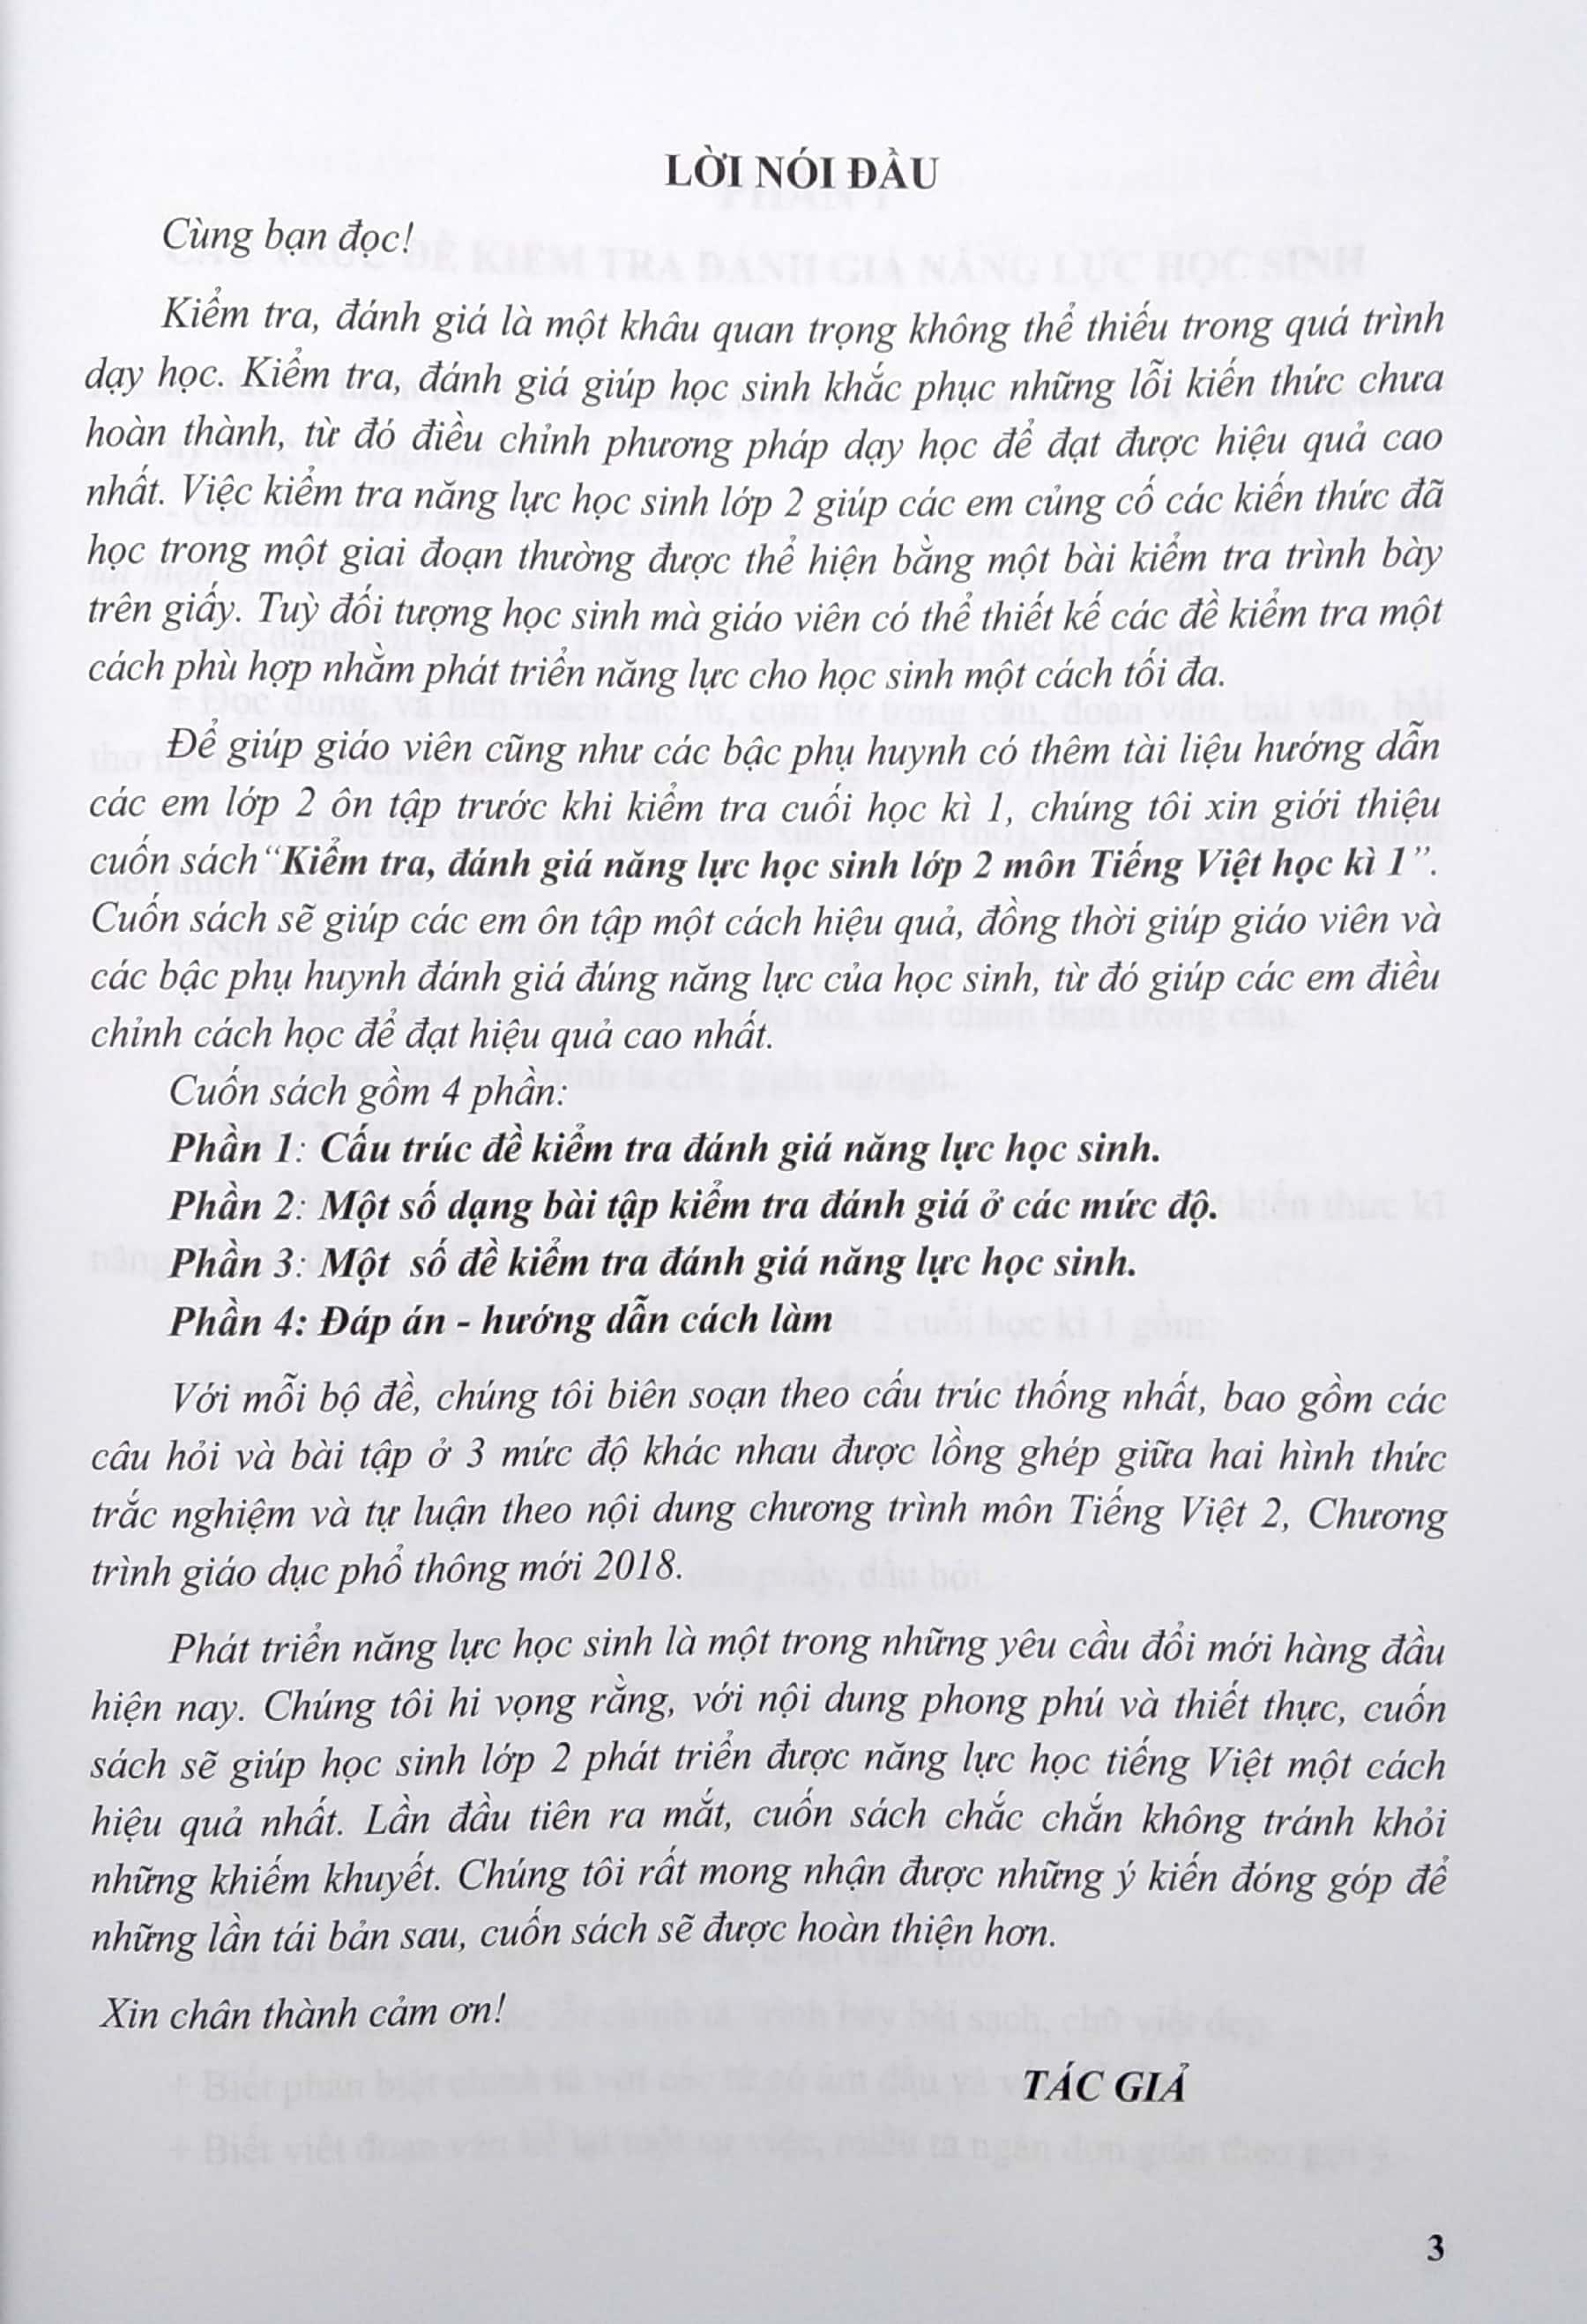 LỜI NÓI ĐẦU
Cùng bạn đọc!
Kiểm tra, đánh giá là một khâu quan trọng không thể thiếu trong quá trình
dạy học. Kiểm tra, đánh giá giúp học sinh khắc phục những lỗi kiến thức chưa
hoàn thành, từ đó điều chỉnh phương pháp dạy học để đạt được hiệu quả cao
nhất. Việc kiểm tra năng lực học sinh lớp 2 giúp các em củng cố các kiến thức đã
học trong một giai đoạn thường được thể hiện bằng một bài kiểm tra trình bày
trên giấy. Tuỳ đối tượng học sinh mà giáo viên có thể thiết kế các đề kiểm tra một
cách phù hợp nhằm phát triển năng lực cho học sinh một cách tối đa.
Để giúp giáo viên cũng như các bậc phụ huynh có thêm tài liệu hướng dẫn
các em lớp 2 ôn tập trước khi kiểm tra cuối học kì 1, chúng tôi xin giới thiệu
cuốn sách“Kiểm tra, đánh giá năng lực học sinh lớp 2 môn Tiếng Việt học kì 1”.
Cuốn sách sẽ giúp các em ôn tập một cách hiệu quả, đồng thời giúp giáo viên và
các bậc phụ huynh đánh giá đúng năng lực của học sinh, từ đó giúp các em điều
chỉnh cách học để đạt hiệu quả cao nhất.
Cuốn sách gồm 4 phần:
Phần 1: Cấu trúc đề kiểm tra đánh giá năng lực học sinh.
Phần 2: Một số dạng bài tập kiểm tra đánh giá ở các mức độ.
Phần 3: Một  số đề kiểm tra đánh giá năng lực học sinh.
Phần 4: Đáp án - hướng dẫn cách làm
Với mỗi bộ đề, chúng tôi biên soạn theo cấu trúc thống nhất, bao gồm các
câu hỏi và bài tập ở 3 mức độ khác nhau được lồng ghép giữa hai hình thức
trắc nghiệm và tự luận theo nội dung chương trình môn Tiếng Việt 2, Chương
trình giáo dục phổ thông mới 2018.
Phát triển năng lực học sinh là một trong những yêu cầu đổi mới hàng đầu
hiện nay. Chúng tôi hi vọng rằng, với nội dung phong phú và thiết thực, cuốn
sách sẽ giúp học sinh lớp 2 phát triển được năng lực học tiếng Việt một cách
hiệu quả nhất. Lần đầu tiên ra mắt, cuốn sách chắc chắn không tránh khỏi
những khiếm khuyết. Chúng tôi rất mong nhận được những ý kiến đóng góp để
những lần tái bản sau, cuốn sách sẽ được hoàn thiện hơn.
Xin chân thành cảm ơn!
TÁC GIẢ
3